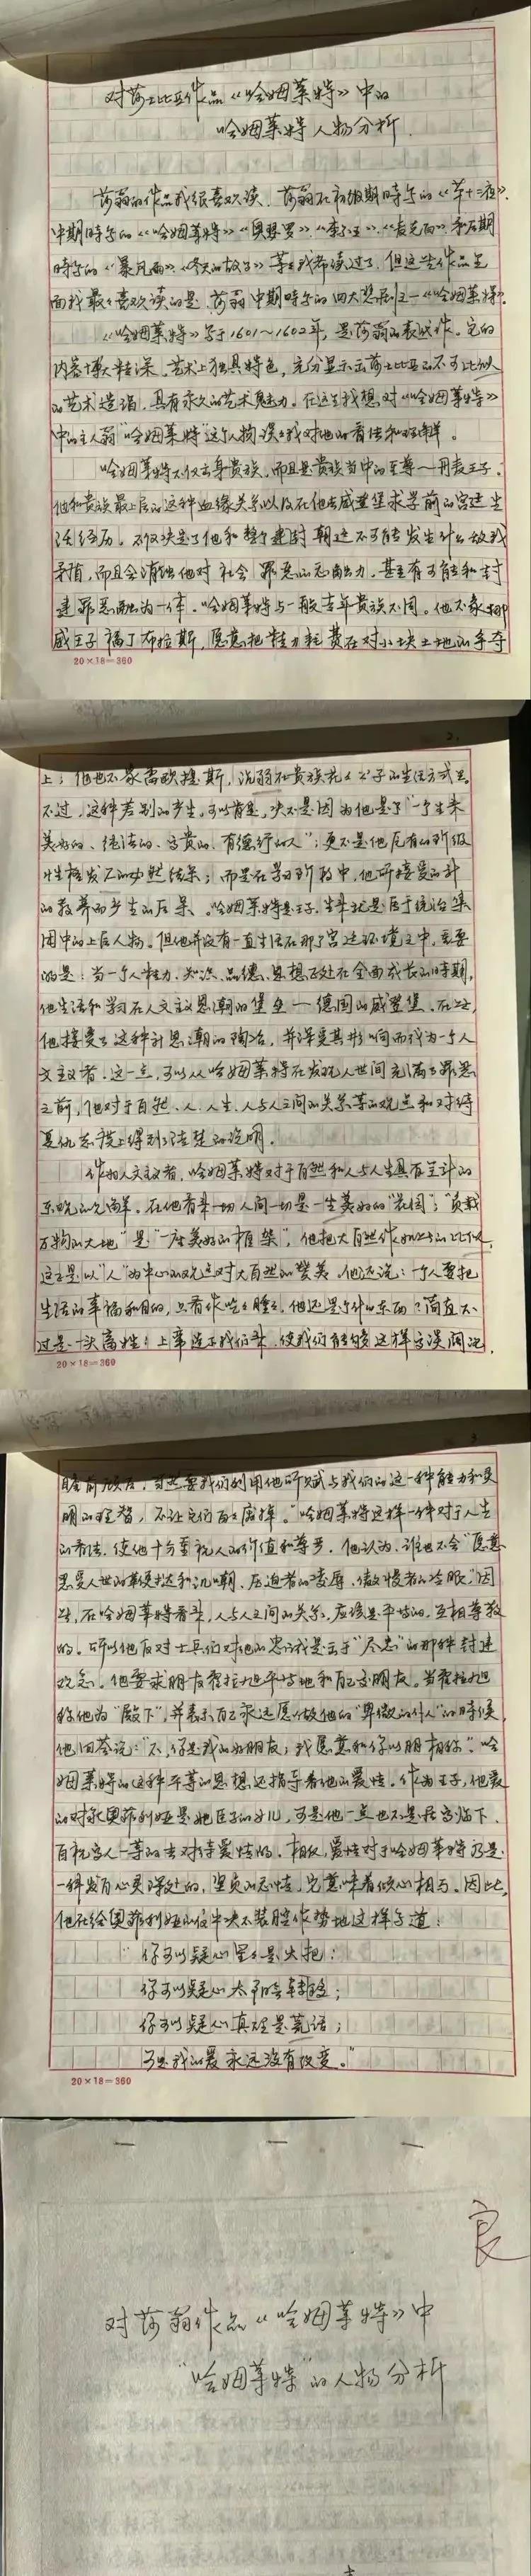 对莎士比亚作品《哈姆莱特》中的
哈姆莱特人物分析
莎翁的作品我很喜欢读。莎翁在初级期时写的《第十二夜》,
中期时写的《哈姆莱特》《奥瑟罗》《李尔王》《麦克白》和后期
时写的《暴风雨》《冬天的故事》等我都读过了,但这些作品里
面我最最喜欢读的是,莎翁中期时写的四大悲剧之一《哈姆莱特》。
《哈姆莱特》写于1601~1602年,是莎翁的代表作。它的
内容博大精深,艺术上独具特色,充分显示出莎士比亚的不可比似
的艺术造诣,具有永久的艺术魅力。在这里我想对《哈姆莱特》
中的主人翁"哈姆莱特"这个人物谈谈我对他的看法和理解。
哈姆莱特不仅出身贵族,而且是贵族当中的至尊—丹麦王子。
他和贵族最上层的这种血缘关系以及在他去威登堡求学前的宫廷生
活经历,不仅决定了他和整个建封朝廷不可能发生什么敌我
矛盾,而且会消蚀他对社会罪恶的感触力,甚至有可能和封
建罪恶融为一体。哈姆莱特与一般青年贵族不同。他不象挪
威王子福丁布拉斯,愿意把精力耗费在对小块土地的争夺
20×18=360
2.
上;他也不象雷欧提斯,沉溺于贵族花花公子的生活方式里。
不过,这种差别的产生,可以肯定,决不是因为他是个"一个生来
美好的、纯洁的、高贵的、有德行的人";更不是他原有的阶级
性格发展的必然结果;而是在学习阶段中,他所接受的新
的教养而产生的后果。哈姆莱特是王子,生来就是居于统治集
团中的上层人物。但他并没有一直生活在那个宫廷环境之中,重要
的是:当一个人精力、知识、品德、思想正处在全面成长的时期,
他生活和学习在人文主义思潮的堡垒—德国的威登堡。在这里,
他接受了这种新思潮的陶冶,并深受其影响而成为一个人
文主义者。这一点,可以从哈姆莱特在发现人世间充满了罪恶
之前,他对于自然、人、人生、人与人之间的关系等的观点和对待
复仇态度上得到了清楚的说明。
作为人文主义者,哈姆莱特对于自然和人与人生具有全新的
乐观的见解。在他看来一切人间一切是一生美好的"花园";"负载
万物的大地"是"一座美好的框架",他把大自然作如此的比似,
这正是以"人"为中心的观点对大自然的赞美。他还说:一个人要把
生活的幸福和目的,只看作吃吃睡睡,他还是个什么东西?简直不
过是一头畜牲!上帝造下我们来,使我们能够这样高谈阔论,
20×18=360
3
瞻前顾后,当然要我们利用他所赋与我们的这一种能力和灵
明的理智,不让它们白白废掉。"哈姆莱特这样一种对于人生
的看法,使他十分重视人的价值和尊严。他认为,谁也不会"愿意
忍受人世的鞭挞和讥嘲、压迫者的凌辱、傲慢者的冷眼,"因
此,在哈姆莱特看来,人与人之间的关系,应该是平等的,互相尊敬
的。所以他反对士兵们对他的忠诚是出于"尽忠"的那种封建
观念。他要求朋友霍拉旭平等地和自己交朋友。当霍拉旭
称他为"殿下",并表示自己永远愿做他的"卑微的仆人"的时候,
他回答说:"不,你是我的好朋友;我愿意和你以朋相称"。哈
姆莱特的这种平等的思想还指导着他的爱情。作为王子,他爱
的对象奥菲利娅是他臣子的女儿,可是他一点也不是居高临下,
自视高人一等的去对待爱情的。相反,爱情对于哈姆莱特乃是
一种发自心灵深处的,坚贞的感情,它意味着倾心相与。因此,
他在给奥菲利娅的信中决不装腔作势地这样写道:
"你可以疑心星星是火把;
你可以疑心太阳会转移;
你可以疑心真理是谎话;
可是我的爱永远没有改变。"
20×18=360
良
对莎翁作品《哈姆莱特》中
"哈姆莱特"的人物分析